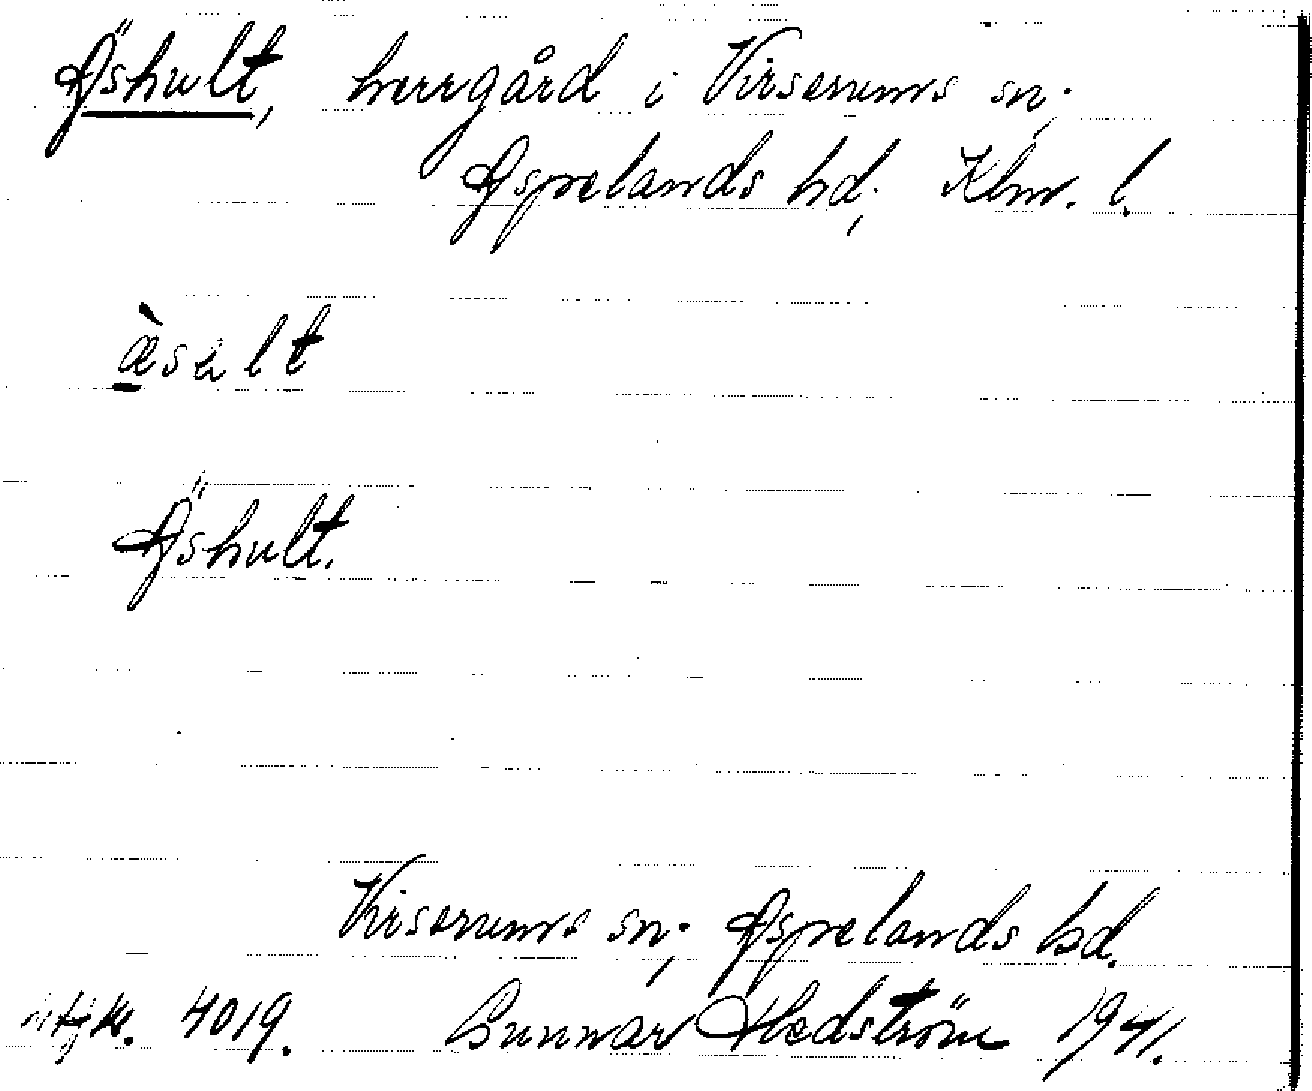 Äshult, herrgård i Virserums sn.,
Aspelands hd., Klm. l.
Äshult.
Virserums sn., Aspelands hd.
4019. Gunnar Hedström 1941.